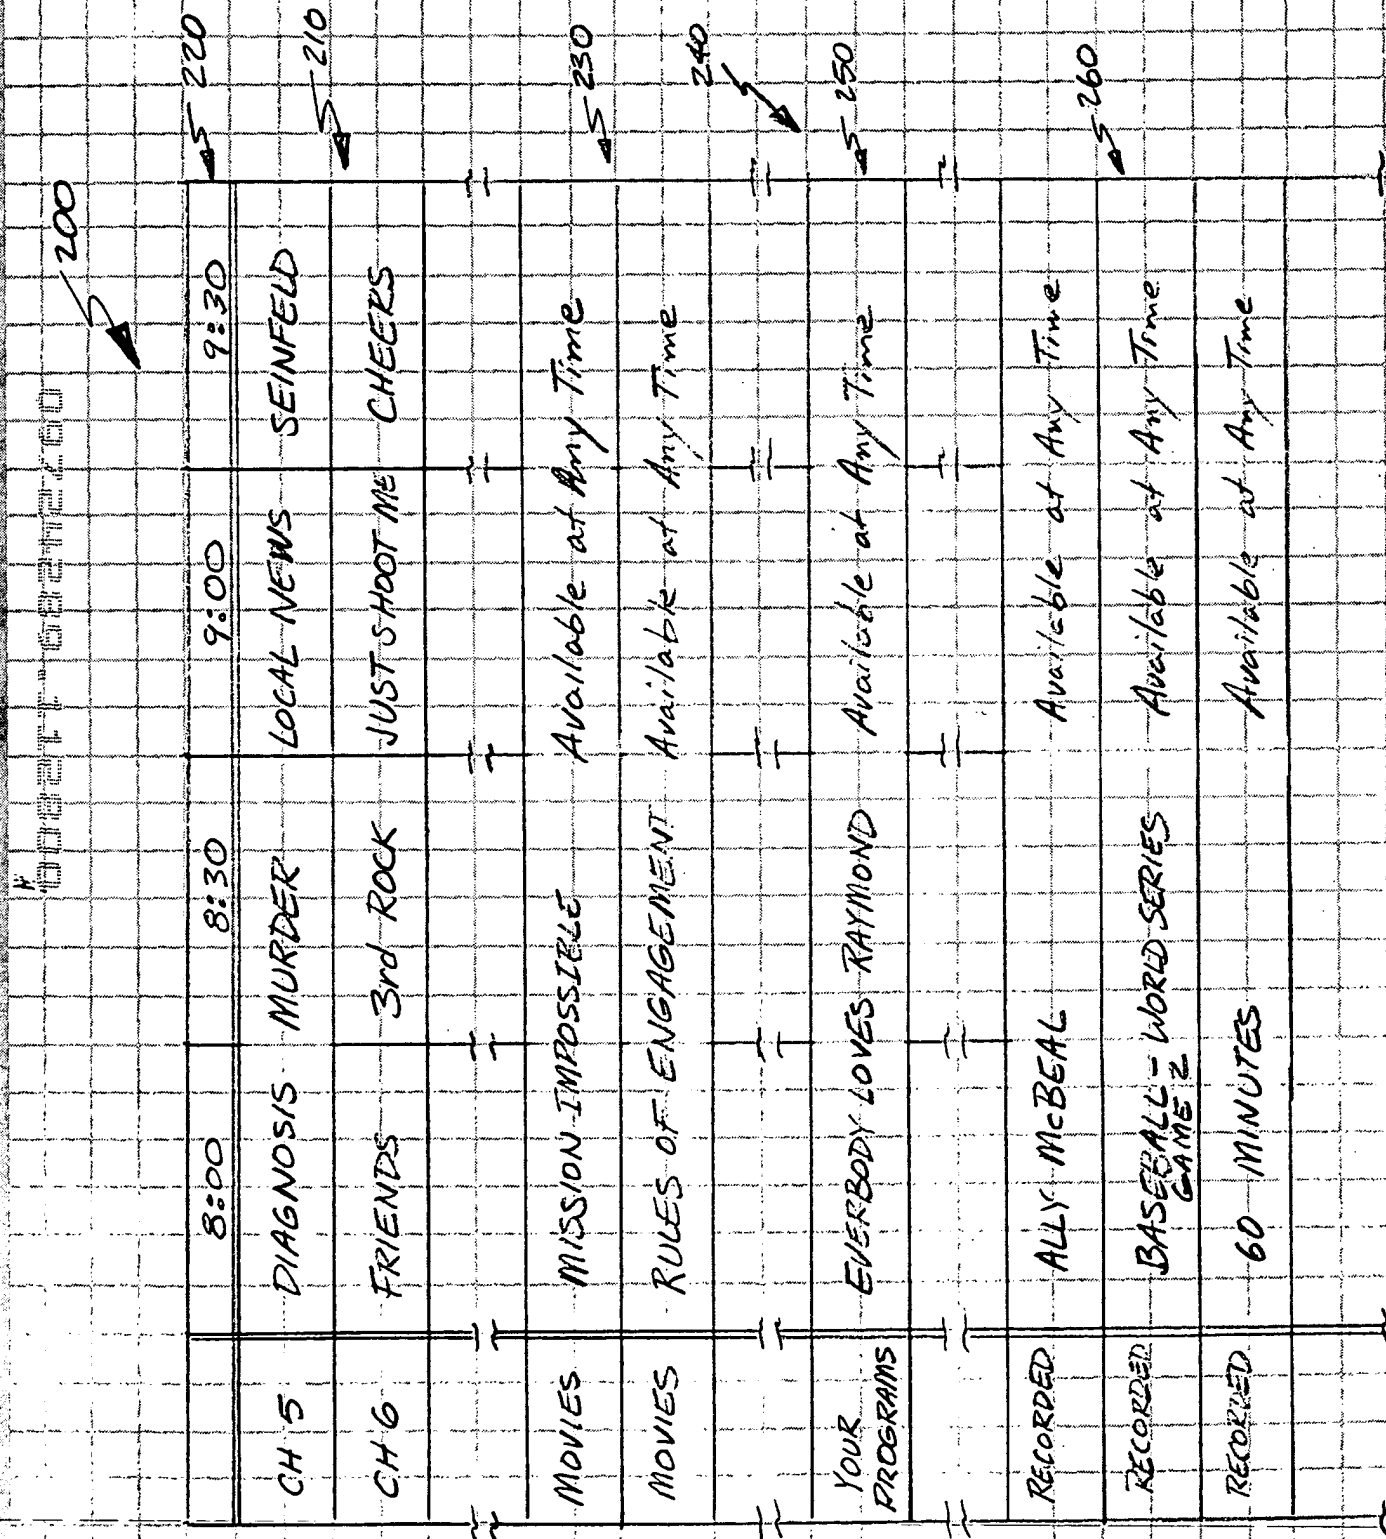 200
8:00 8:30 9:00 9:30 220
CH 5 DIAGNOSIS MURDER LOCAL NEWS SEINFELD
CH 6 FRIENDS 3rd ROCK JUST SHOOT ME CHEERS 210
MOVIES MISSION IMPOSSIBLE Available at Any Time 230
MOVIES RULES OF ENGAGEMENT Available at Any Time
240
YOUR PROGRAMS EVERBODY LOVES RAYMOND Available at Any Time 250
RECORDED ALLY McBEAL Available at Any Time
RECORDED BASEBALL - WORLD SERIES GAME 2 Available at Any Time 260
RECORDED 60 MINUTES Available at Any Time